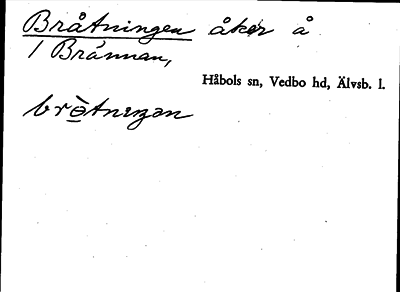 Bråtningen åker å
1 Brännan,
Håbols sn, Vedbo hd, Älvsb. l.
brò̲tnıŋən